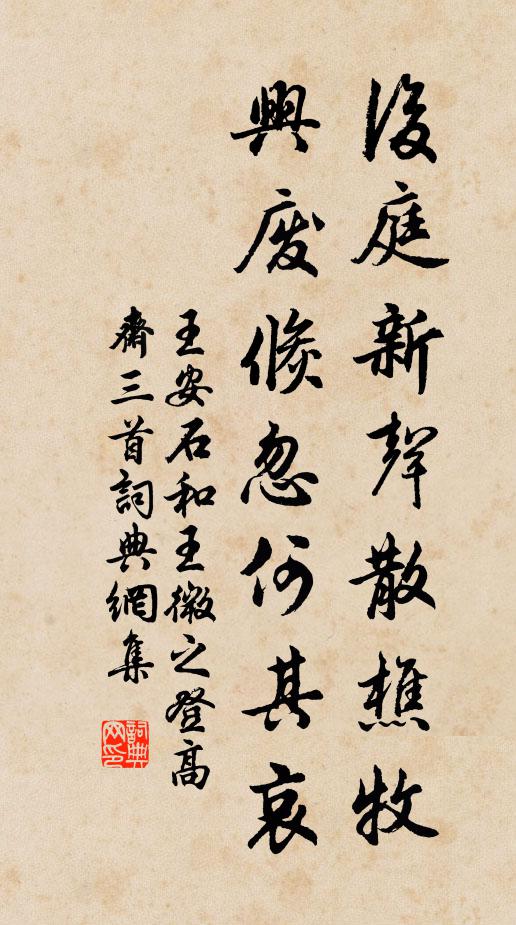 後庭新聲散樵牧
興廢倐忽何其哀
王安石和王微之登高
齋三首詞典網集
詞典
网印